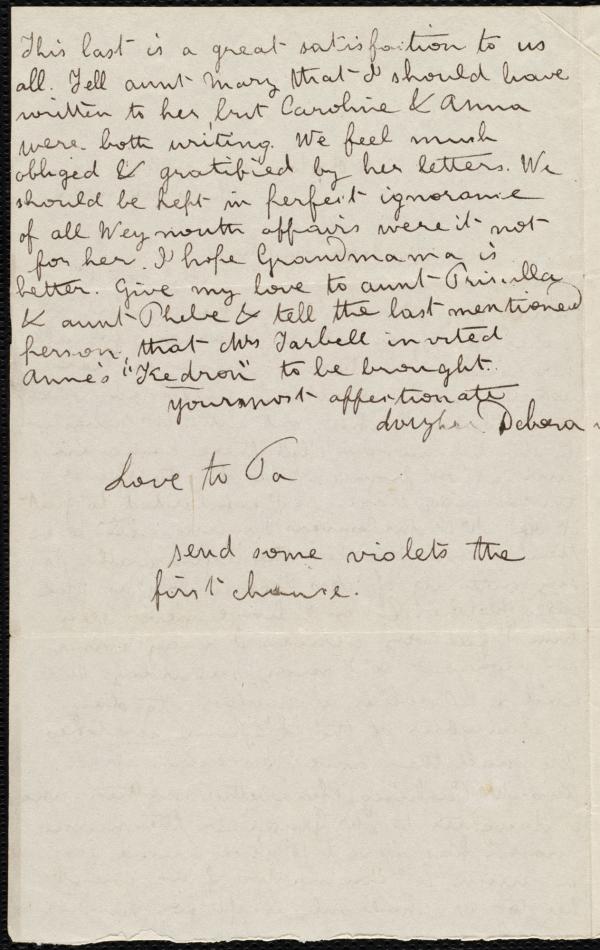 This last is a great satisfaction to us
all. Tell aunt Mary that I should have
written to her, but Caroline & Anna
were both writing. We feel much
obliged & gratified by her letters. We
should be kept in perfect ignorance
of all Weymouth affairs were it not
for her. I hope Grandmama is
better. Give my love to aunt Priscilla
& aunt Phebe & tell the last mentioned
person, that Mrs Tarbell invited
Anne's "Kedron" to be brought.
Yours most affectionate
daughter Debora
Love to Pa
send some violets the
first chance.